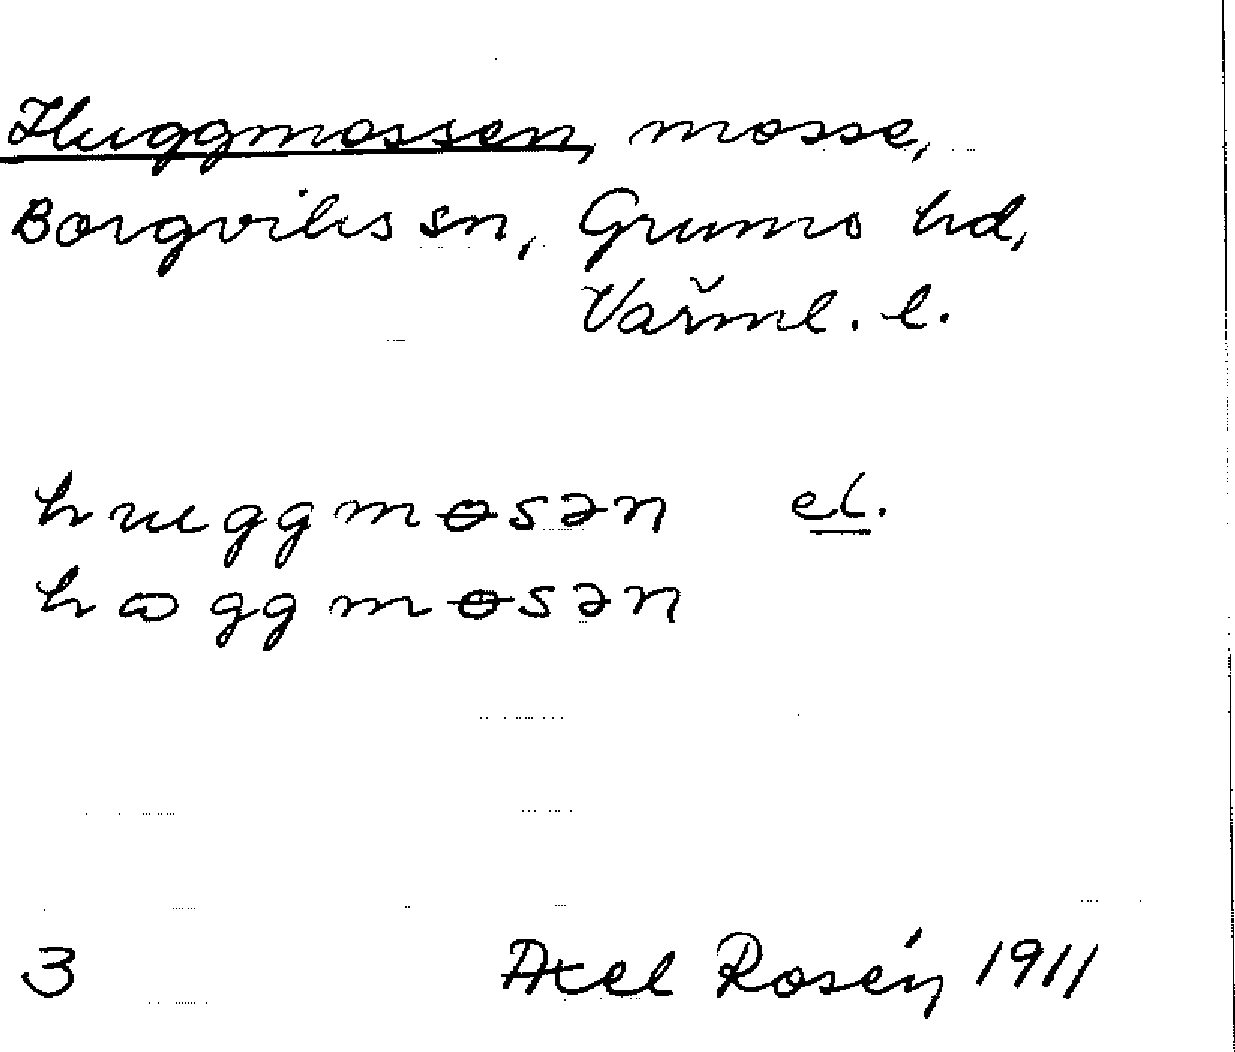 Huggmossen, mosse,
Borgviks sn, Grums hd,
Värml. l.
huggmɵsən el.
hɷggmɵsən
3 Axel Rosén 1911